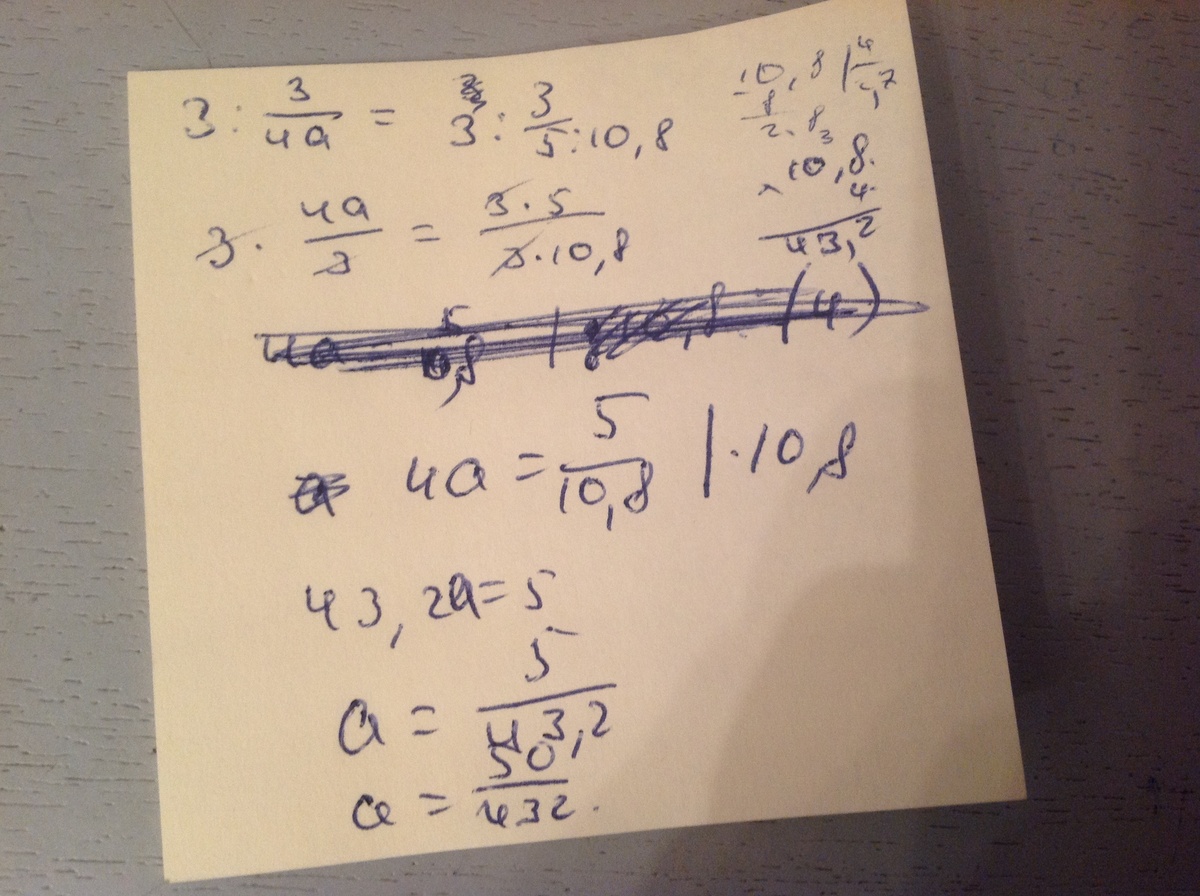 3 : 3/4a = 3 : 3/5 : 10,8
3 · 4a/3 = 3 · 5/3 · 10,8
4a = 5/10,8 | · 10,8
43,2a = 5
a = 5/43,2
a = 50/432.
10,8 | 4
8
2.8
× 10,8
4
43,2